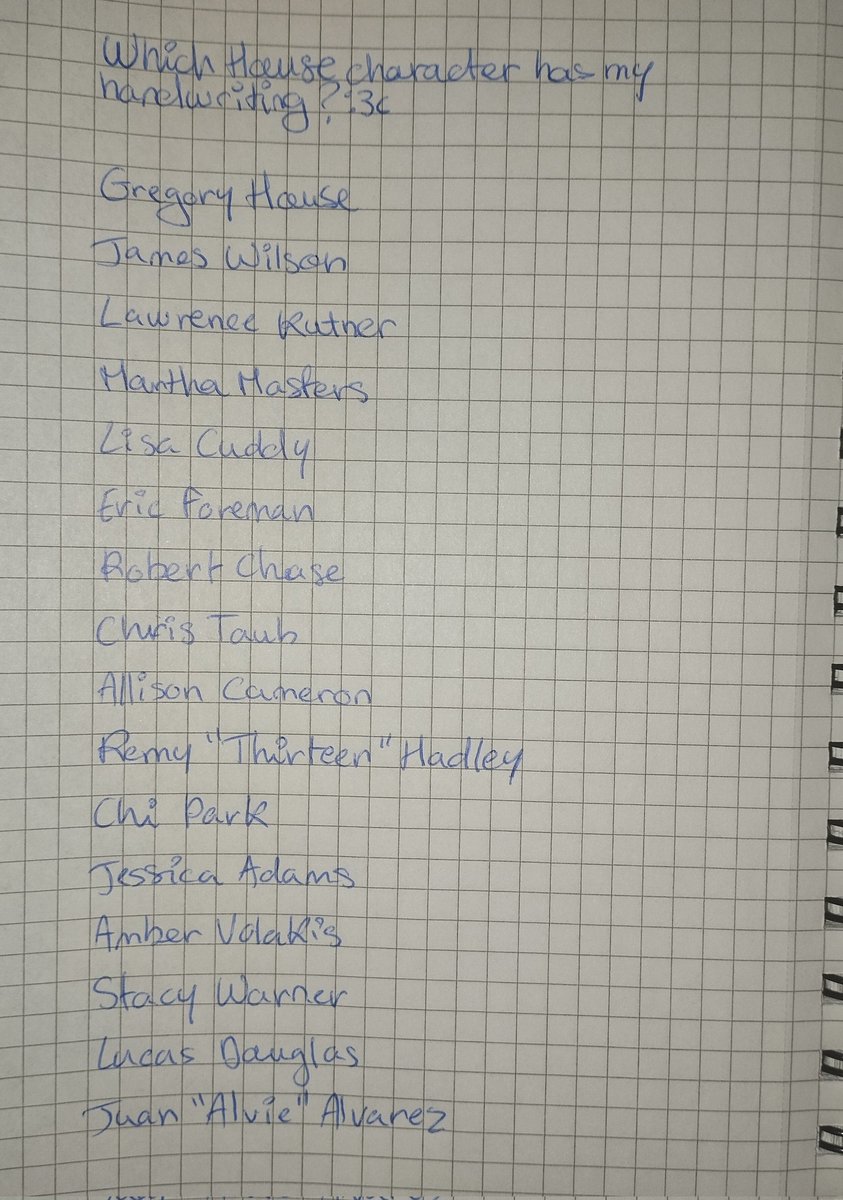 Which House character has my
handwriting? :3c
Gregory House
James Wilson
Lawrence Kutner
Martha Masters
Lisa Cuddy
Eric Foreman
Robert Chase
Chris Taub
Allison Cameron
Remy "Thirteen" Hadley
Chi Park
Jessica Adams
Amber Volakis
Stacy Warner
Lucas Douglas
Juan "Alvie" Alvarez